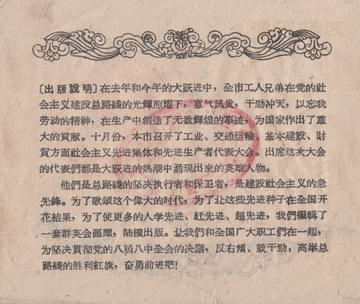 〔出版說明〕在去年和今年的大跃进中，全市工人兄弟在党的社
会主义建設总路綫的光輝照耀下，意气风发，干劲冲天，以忘我
劳动的精神，在生产中創造了无数輝煌的事迹，为国家作出了重
大的貢献。十月份，本市召开了工业、交通运輸、基本建設、財
貿方面社会主义先进集体和先进生产者代表大会。出席这次大会
的代表們都是大跃进的热潮中涌現出来的英雄人物。
他們是总路綫的坚决执行者和保卫者，是建設社会主义的急
先鋒。为了歌頌这个偉大的时代，为了让这些先进种子在全国开
花結果，为了使更多的人学先进、赶先进、超先进，我們編輯了
一套群英会画庫，陆續出版。让我們和全国广大职工們在一起，
为坚决貫彻党的八届八中全会的决議，反右傾、鼓干劲，高举总
路綫的胜利紅旗，奋勇前进吧！